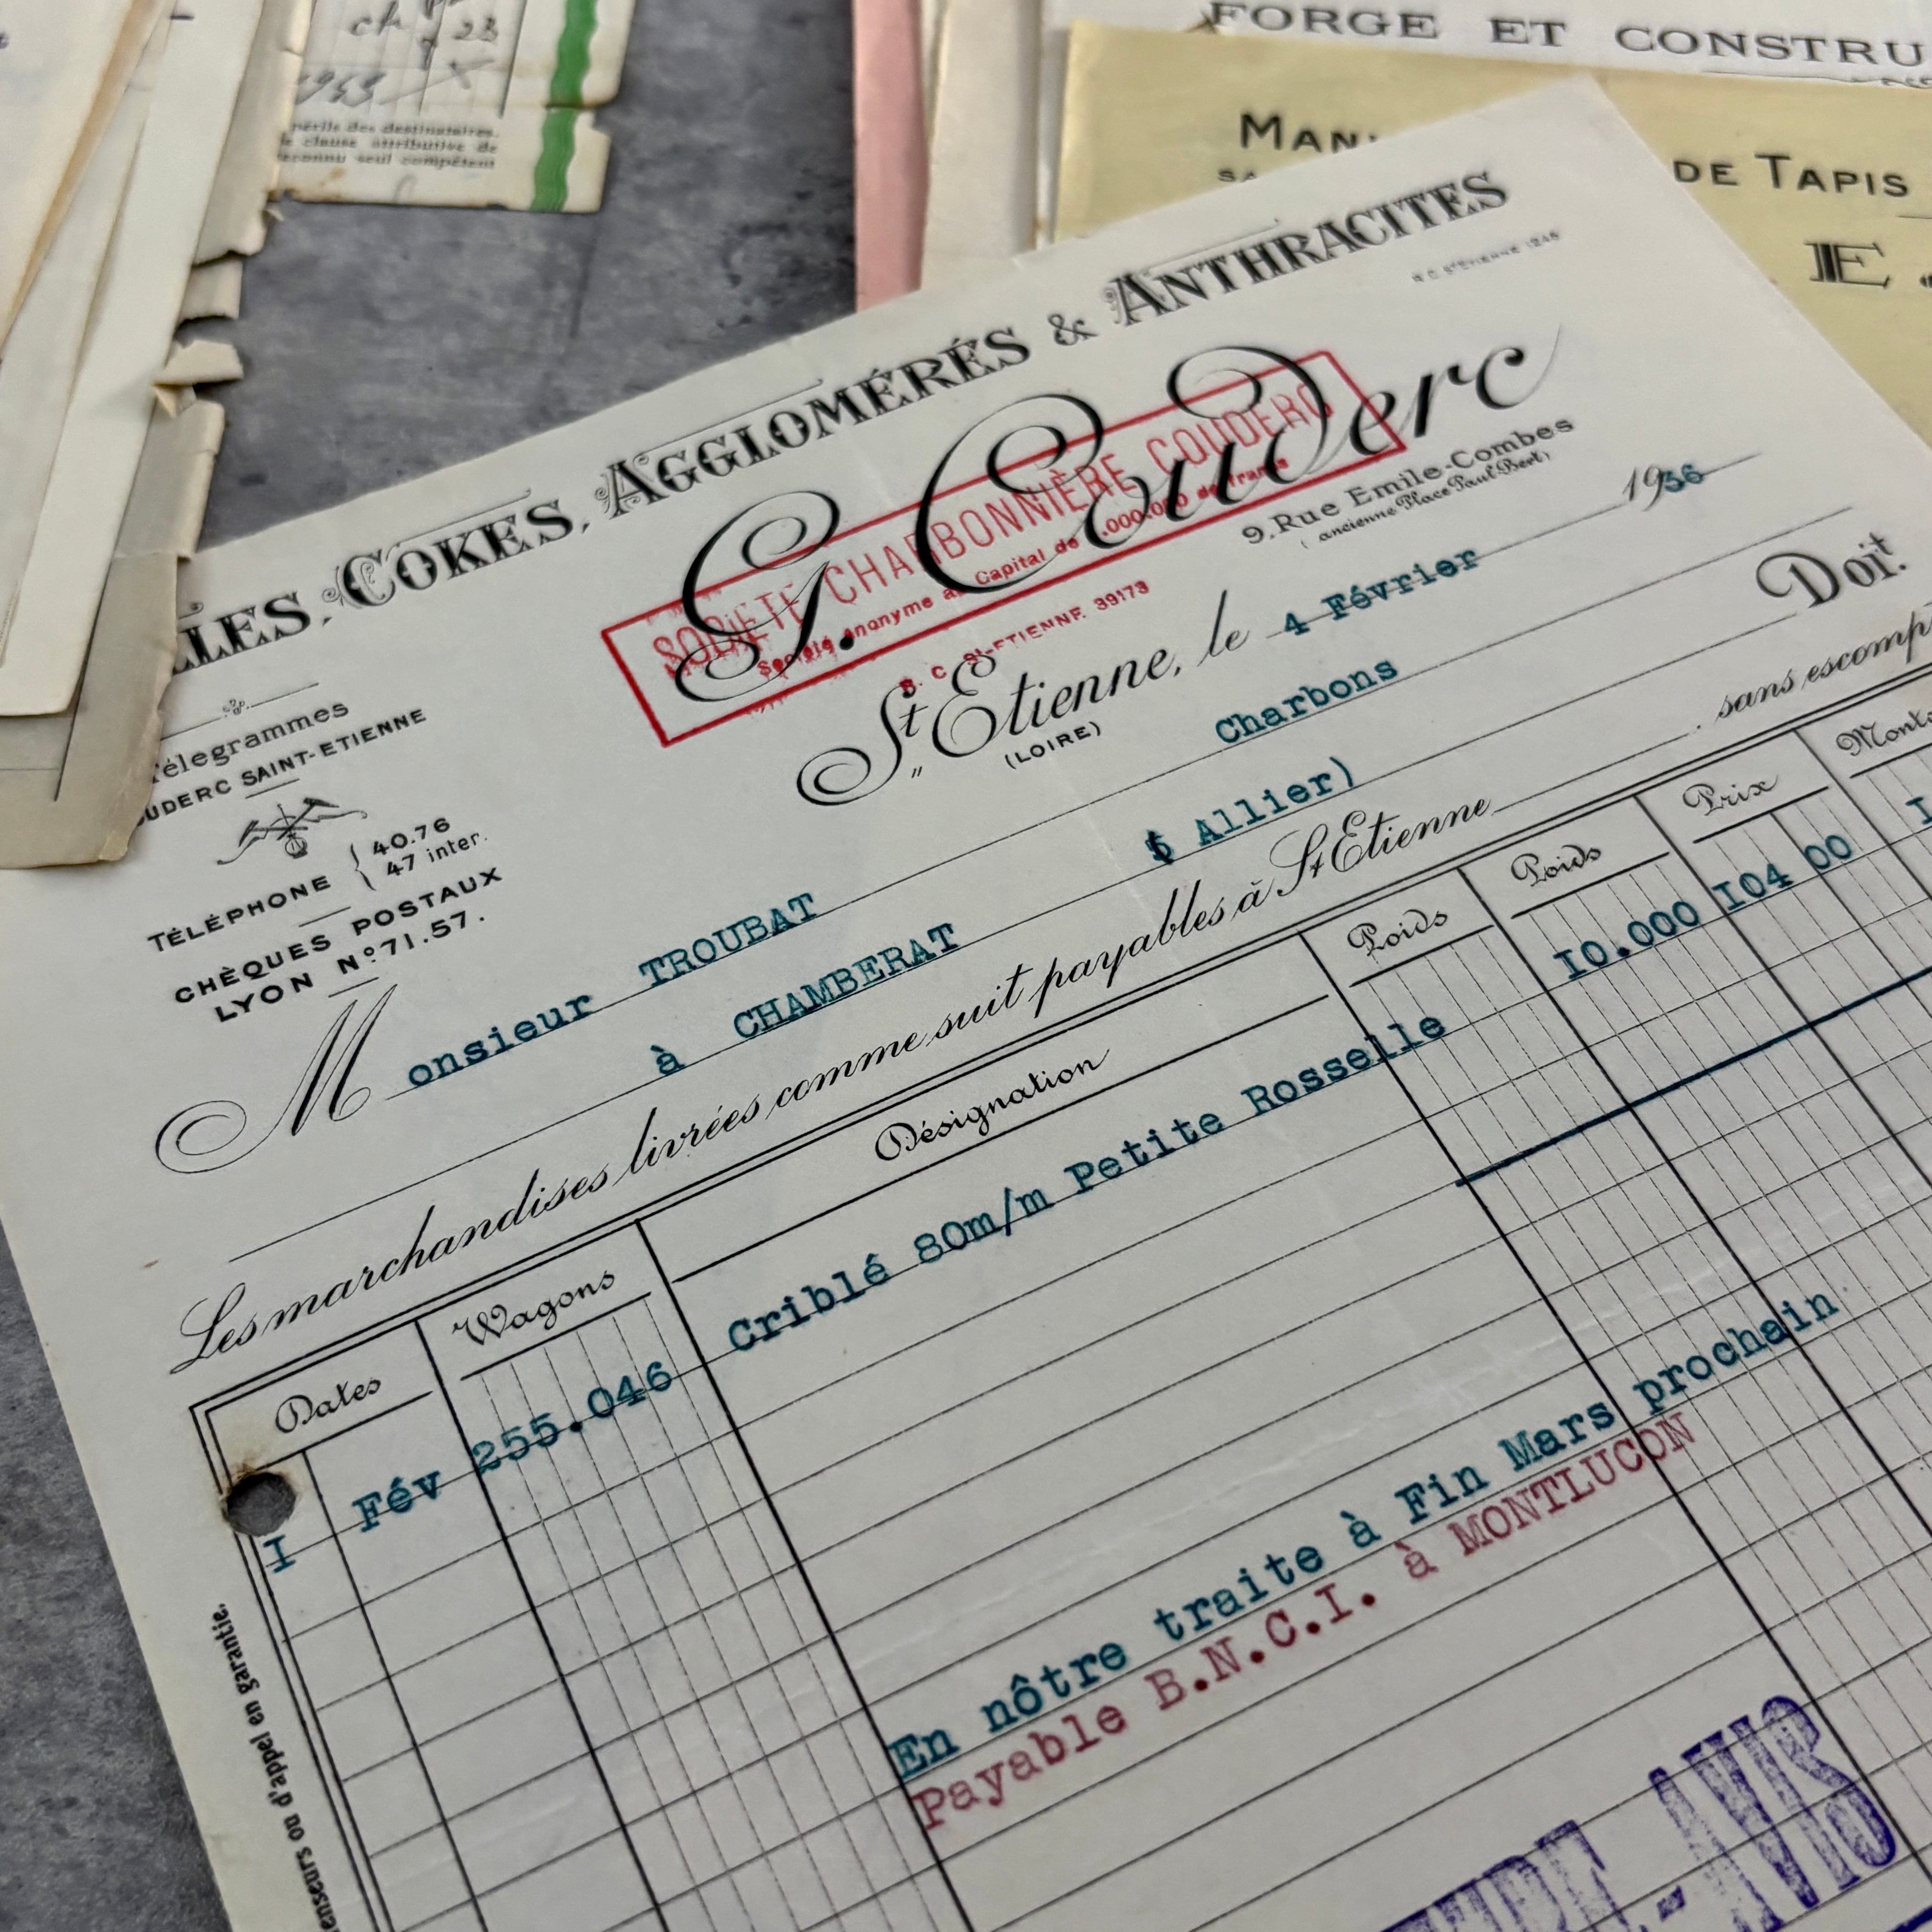 ch
23
1943
périls des destinataires.
clause attributive de
reconnu seul compétent
FORGE ET CONSTRU
DE TAPIS
E.
LLES, COKES, AGGLOMÉRÉS & ANTHRACITES
R.C. ST ETIENNE 1246
G. Couderc
SOCIÉTÉ CHARBONNIÈRE COUDERC
Société anonyme a Capital de .000.000 de francs
R. C. St-ETIENNE. 39173
9, Rue Emile-Combes
(ancienne Place Paul Bert)
St Etienne, le 4 Février 1936
(LOIRE)
Télégrammes
OUDERC SAINT-ETIENNE
TÉLÉPHONE { 40.76
47 inter.
CHÈQUES POSTAUX
LYON N° 71.57.
Monsieur TROUBAT Charbons
Doit.
à CHAMBERAT Allier)
Les marchandises livrées comme suit payables à St Etienne sans escomp
Dates Wagons Désignation Poids Poids Prix Monta
I Fév 255.046 Criblé 80m/m Petite Rosselle 10.000 104 00 I
En nôtre traite à Fin Mars prochain
Payable B.N.C.I. à MONTLUCON
-AVIS
enseurs ou d'appel en garantie.